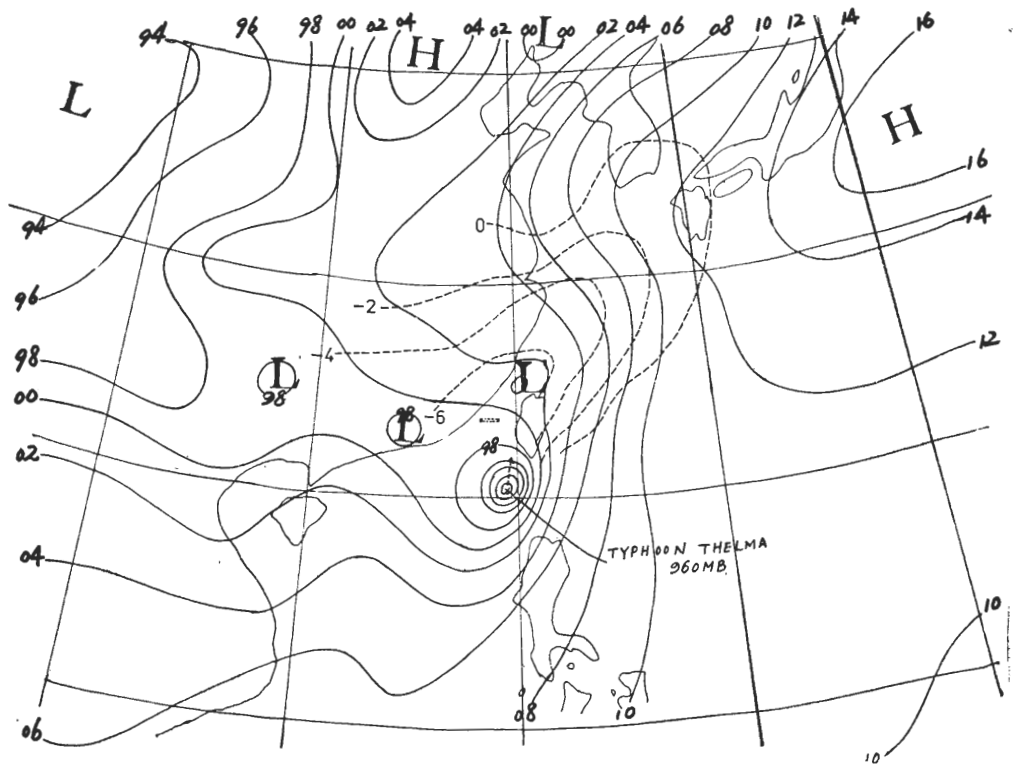 94 96 98 00 02 04 H 04 02 00 L 00 02 04 06 08 10 12 14 16
L
H
16
94
0
14
96
-2
98
-4
12
L
98
L
00
98
L
-6
98
02
04
TYPHOON THELMA
960MB
10
06
08
10
10